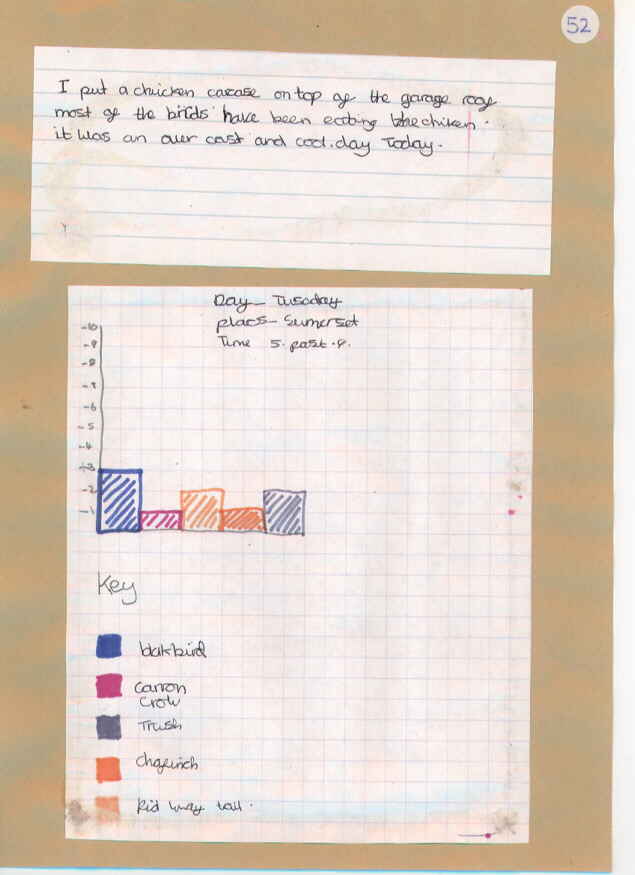 52
I put a chuicken carcase on top of the garage roof
most of the birds have been eating the chiken.
it was an over cast and cool.day Today.
Day - Tuesday
place - Sumerset
Time 5. past.4.
-10
-9
-8
-7
-6
-5
-4
-3
-2
-1
Key
blakbird
carron
crow
Trush
chafinch
Pid way tail.